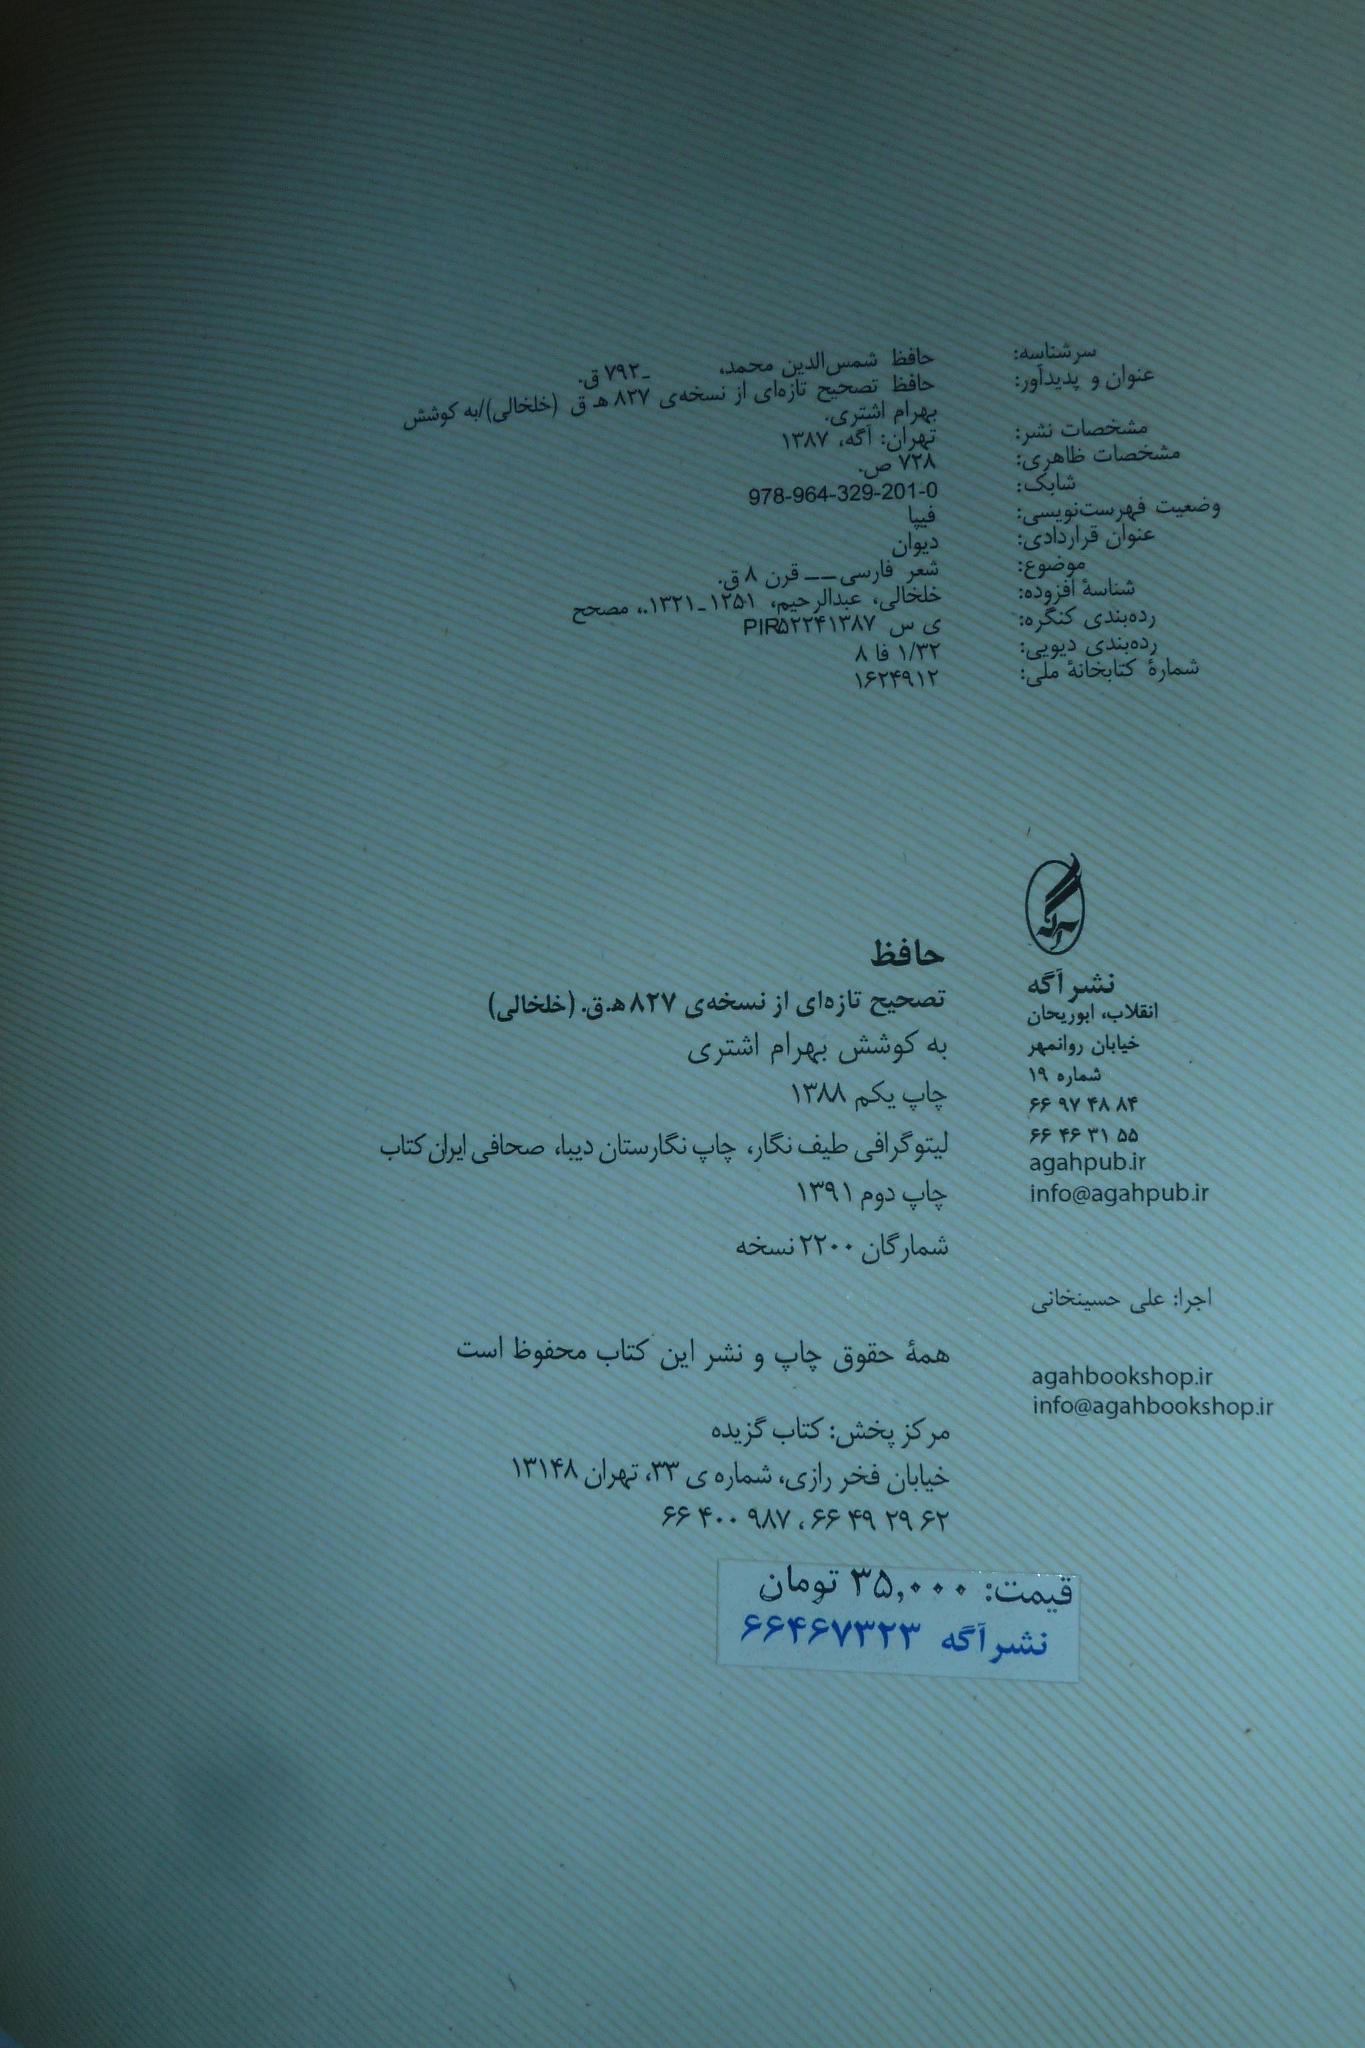 سرشناسه: حافظ شمس‌الدین محمد، ـ۷۹۲ ق.
عنوان و پدیدآور: حافظ تصحیح تازه‌ای از نسخه‌ی ۸۲۷ هـ ق (خلخالی)/به کوشش
بهرام اشتری.
مشخصات نشر: تهران: آگه، ۱۳۸۷
مشخصات ظاهری: ۷۲۸ ص.
شابک: 978-964-329-201-0
وضعیت فهرست‌نویسی: فیپا
عنوان قراردادی: دیوان
موضوع: شعر فارسی ــ قرن ۸ ق.
شناسهٔ افزوده: خلخالی، عبدالرحیم، ۱۲۵۱ـ۱۳۲۱.، مصحح
رده‌بندی کنگره: ی س PIR۵۲۲۴۱۳۸۷
رده‌بندی دیویی: ۱/۳۲ فا ۸
شمارهٔ کتابخانهٔ ملی: ۱۶۲۴۹۱۲
آگه
نشر آگه
انقلاب، ابوریحان
خیابان روانمهر
شماره ۱۹
۶۶ ۹۷ ۴۸ ۸۴
۶۶ ۴۶ ۳۱ ۵۵
agahpub.ir
info@agahpub.ir
اجرا: علی حسینخانی
agahbookshop.ir
info@agahbookshop.ir
حافظ
تصحیح تازه‌ای از نسخه‌ی ۸۲۷ هـ.ق. (خلخالی)
به کوشش بهرام اشتری
چاپ یکم ۱۳۸۸
لیتوگرافی طیف نگار، چاپ نگارستان دیبا، صحافی ایران کتاب
چاپ دوم ۱۳۹۱
شمارگان ۲۲۰۰ نسخه
همهٔ حقوق چاپ و نشر این کتاب محفوظ است
مرکز پخش: کتاب گزیده
خیابان فخر رازی، شماره ی ۳۳، تهران ۱۳۱۴۸
۶۶ ۴۹ ۲۹ ۶۲ ، ۶۶ ۴۰۰ ۹۸۷
قیمت: ۳۵,۰۰۰ تومان
نشر آگه ۶۶۴۶۷۳۲۳